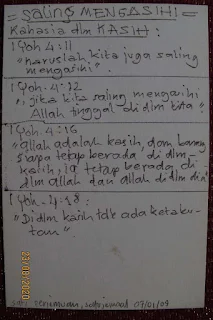 = Saling MENGASIHI =
Rahasia dlm KASIH:
1 Yoh 4:11
"Haruslah kita juga saling
mengasihi".
1 Yoh. 4:12
"jika kita saling mengasihi
Allah tinggal di dlm kita"
1 Yoh. 4:16
"Allah adalah kasih, dan barang
siapa tetap berada di dlm
kasih, ia tetap berada di
dlm Allah dan Allah di dlm dia"
1 Yoh. 4:18:
"Di dlm kasih tdk ada ketaku-
tan"
07/01/09
23/08/2020